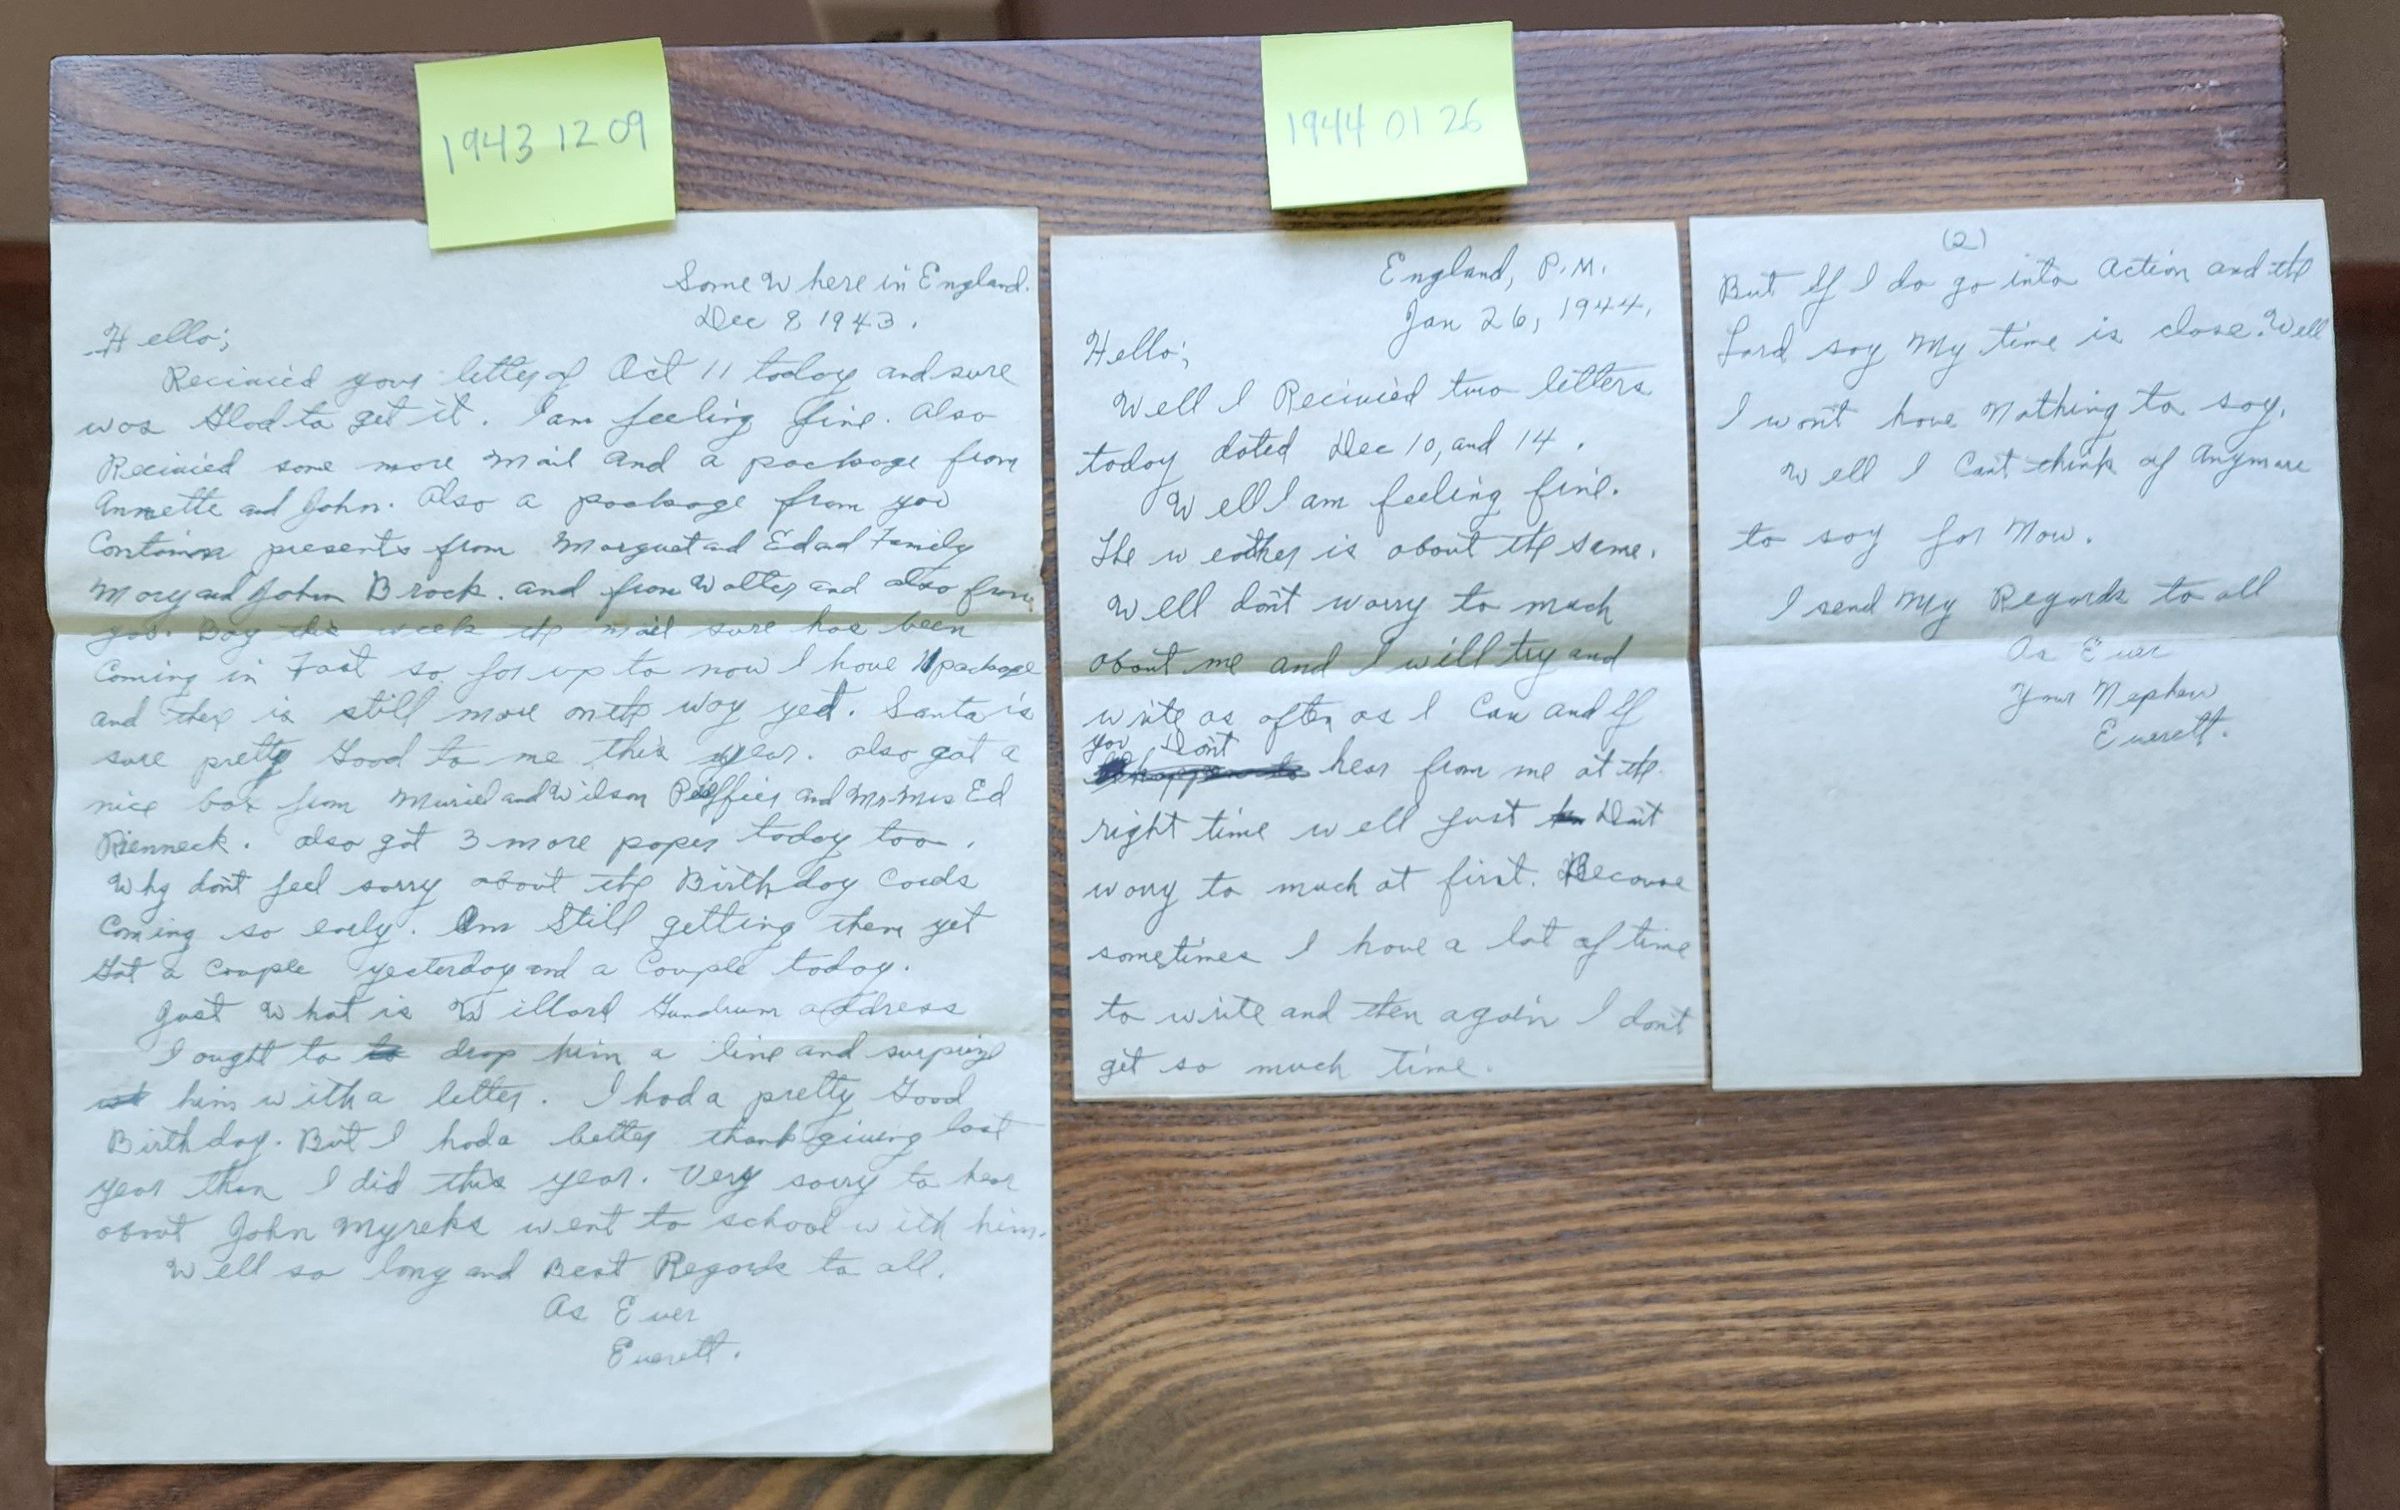 1943 12 09
Some Where in England.
Dec 8 1943.
Hello;
Recivied your letter of Oct 11 today and sure
was Glad to get it. I am feeling fine. Also
Recivied some more mail and a package from
Annette and John. Also a package from you
Contain presents from Marguet and Ed and Family
Mary and John Brock. and from Walter and also from
you. Boy this week the mail sure has been
Coming in Fast so far up to now I have 11 package
and ther is still more on the way yet. Santa is
sure pretty Good to me this year. also got a
nice box from Muriel and Wilson and Mr Mrs Ed
Rienneck. also got 3 more paper today too.
Why don't feel sorry about the Birthday Cards
Coming so early. Am Still getting them yet
Got a Couple yesterday and a Couple today.
Just What is Willard Gundrum address
I ought to to drop him a line and surprize
him with a letter. I had a pretty Good
Birthday. But I had a better thanksgiving last
year than I did this year. Very sorry to hear
about John Myreks went to school with him.
Well so long and Best Regards to all.
As Ever
Everett.
1944 01 26
England, P.M.
Jan 26, 1944.
Hello;
Well I Recivied two letters
today dated Dec 10, and 14.
Well I am feeling fine.
The weather is about the same.
Well don't worry to much
about me and I will try and
write as often as I Can and If
you Don't
happen to hear from me at the
right time well just Don't
worry to much at first. Because
sometimes I have a lot of time
to write and then again I don't
get so much time.
(2)
But If I do go into Action and the
Lord say My time is close. Well
I won't have Nothing to say.
Well I Cant think of Anymore
to say for Now.
I send My Regards to all
As Ever
Your Nephew
Everett.